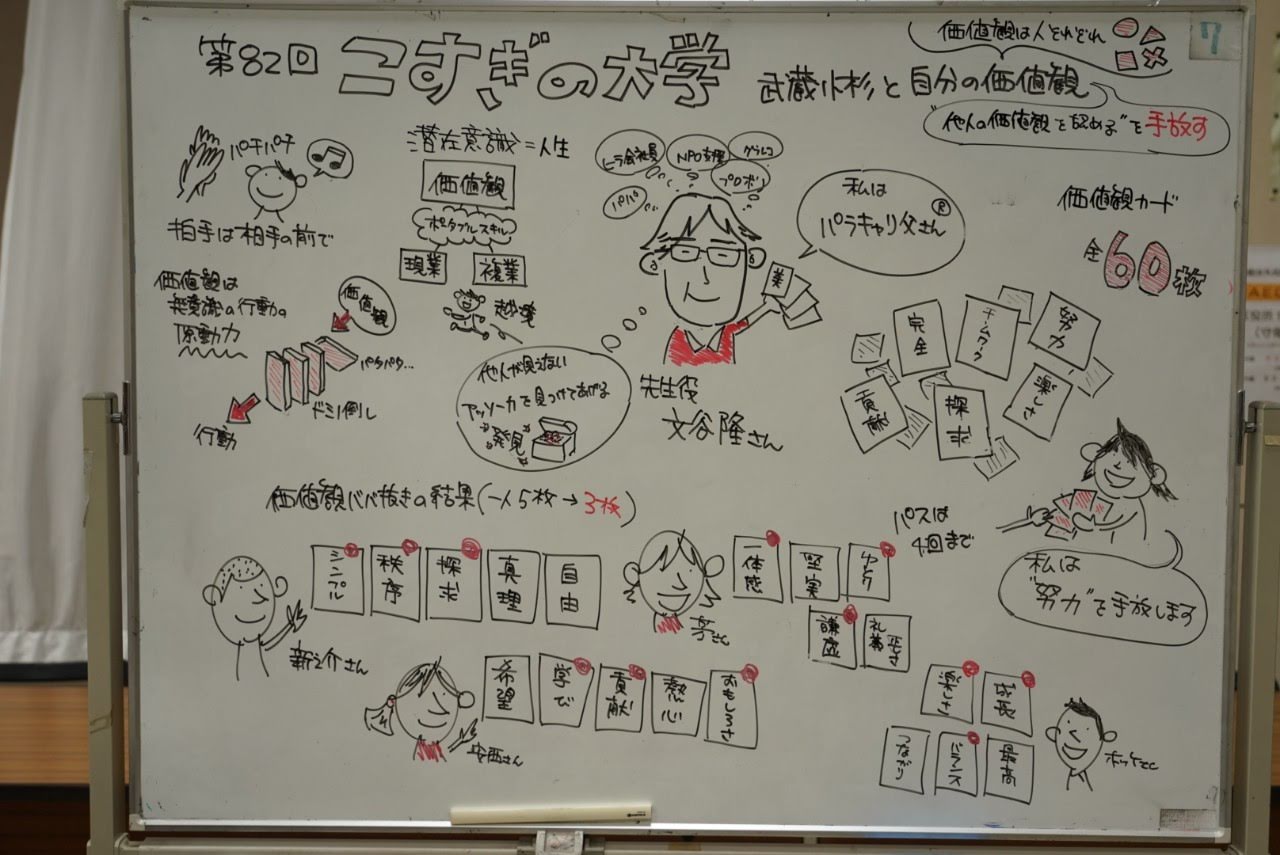 第82回 こすぎの大学 武蔵小杉と自分の価値観
価値観は人それぞれ
"他人の価値観を認める"を手放す
7
パチパチ
拍手は相手の前で
潜在意識=人生
価値観
ポータブルスキル
現業
複業
越境
価値観は
無意識の行動の
原動力
価値観
パタパタ…
ドミノ倒し
行動
ヒラ会社員
NPO支援
グラレコ
プロボノ
パパ
美
私は
パラキャリ父さん®
他人が見えない
アッソーカを見つけてあげる
発見
先生役
文谷隆さん
価値観カード
全60枚
完全
チームワーク
努力
貢献
探求
楽しさ
価値観ババ抜きの結果(一人5枚→3枚)
パスは
4回まで
私は
"努力"を手放します
シンプル
秩序
探求
真理
自由
新之介さん
一体感
堅実
謙虚
礼儀正しさ
希望
学び
貢献
熱心
おもしろさ
安西さん
楽しさ
成長
つながり
バランス
最高
AED